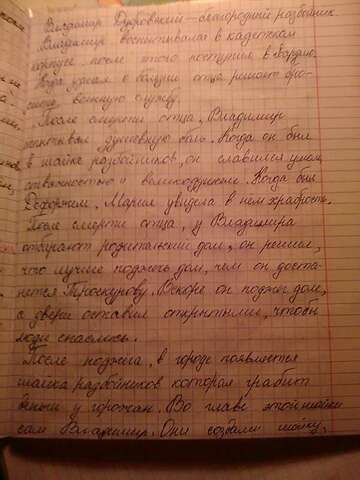 Владимир Дубровский – благородный разбойник.
Владимир воспитывался в кадетском
корпусе после этого поступил в гвардию.
Когда узнал о болезни отца решает бро-
сить военную службу.
После смерти отца, Владимир
испытывал душевную боль. Когда он был
в шайке разбойников, он славился умом,
отважностью и великодушием. Когда был
Дефоржем, Мария увидела в нем храбрость.
После смерти отца, у Владимира
отбирают родительский дом, он решил,
что лучше поджечь дом, чем он доста-
нется Троекурову. Вскоре он поджег дом,
а двери оставил открытыми, чтобы
люди спаслись.
После поджега, в городе появляется
шайка разбойников которая грабит
деньги у горожан. Во главе этой шайки
сам Владимир. Они создали шайку,